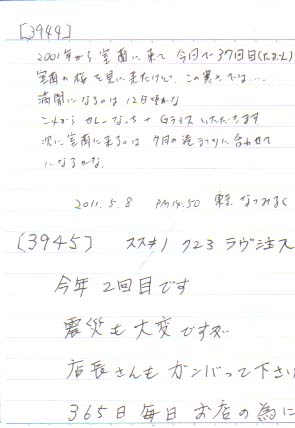 [3944]
2001年から室蘭に来て 今回で37回目(たぶん)
室蘭の桜を見に来たけど、この寒さでは…
満開になるのは12日頃かな
これからカレーラーメン + Gライスいただきます
次に室蘭に来るのは 7月の港まつりに合わせて
になるかな。
2011.5.8 PM14:50 東京
[3945] ススキノ 723 ラヴ注入
今年2回目です
震災も大変ですが
店長さんもガンバって下さい
365日毎日お店の為に